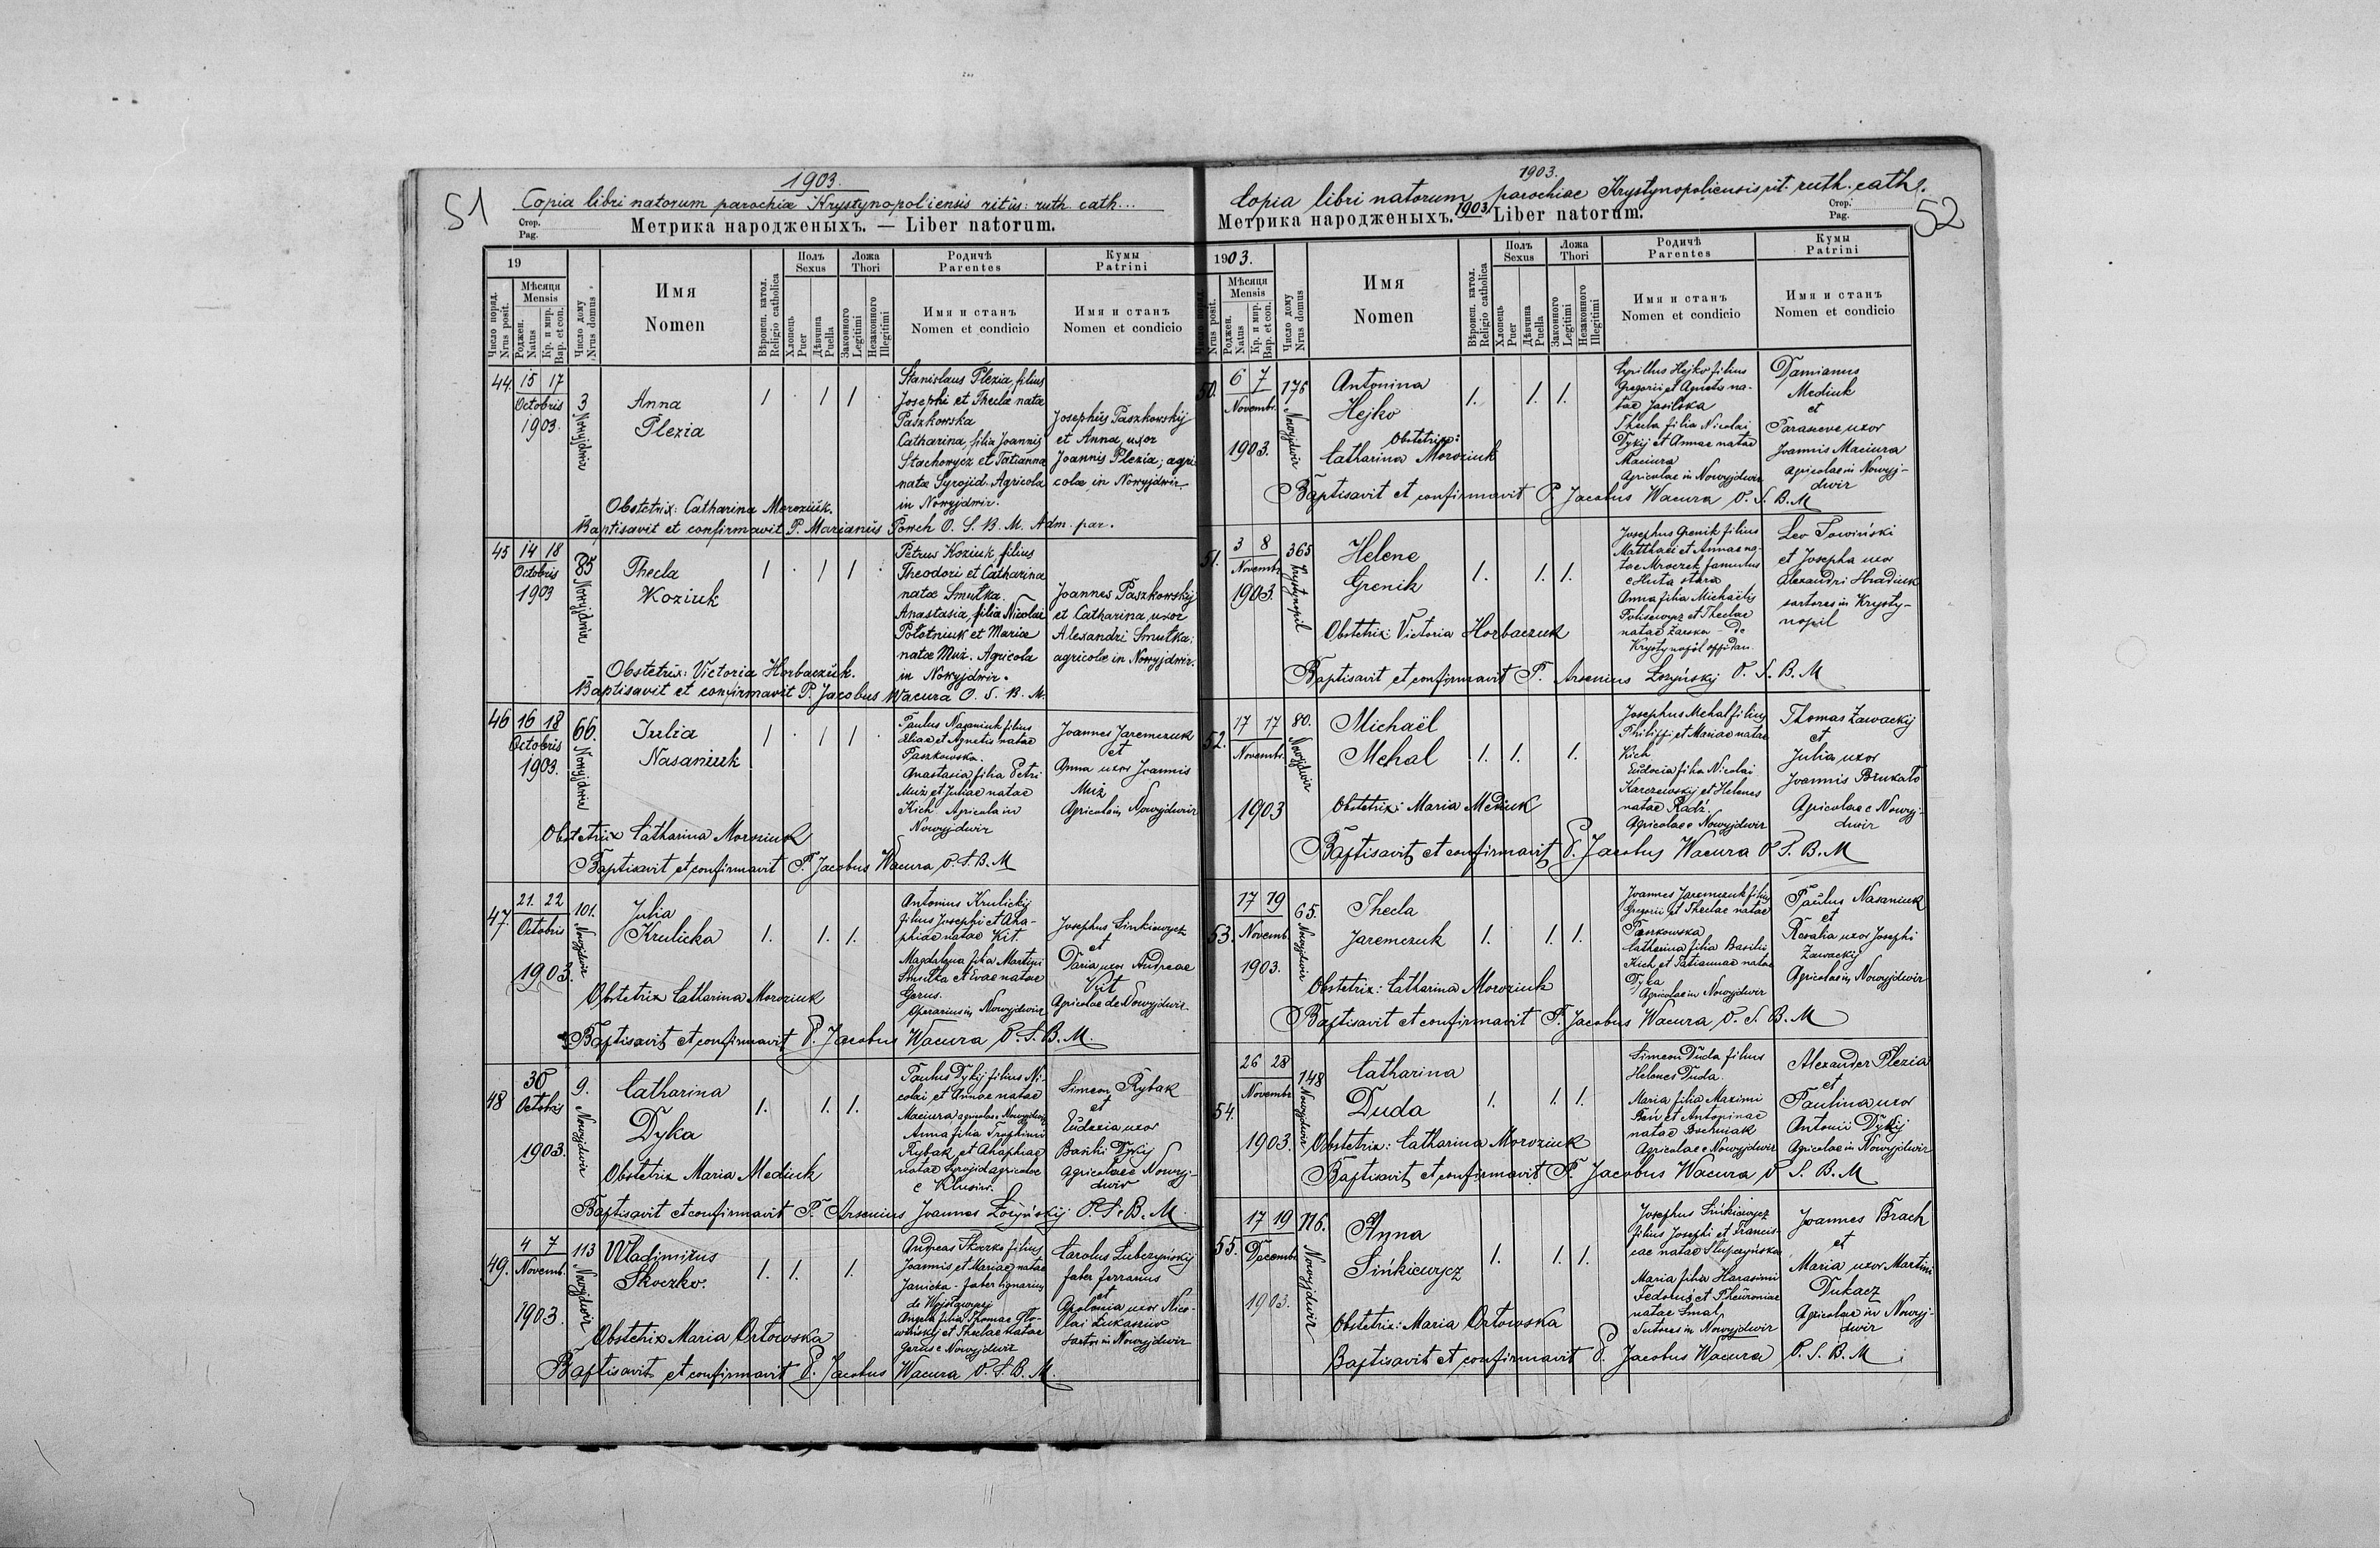 51
1903.
Copia libri natorum parochiæ Krystynopoliensis ritûs: ruth. cath...
Стор.
Pag.
Метрика народженыхъ. — Liber natorum.
19
Число поряд.
Nrus posit.
Мѣсяця
Mensis
Роджен.
Natus
Кр. и мир.
Bap. et con.
Число дому
Nrus domus
Имя
Nomen
Вѣроисп. катол.
Religio catholica
Полъ
Sexus
Хлопець
Puer
Дѣвчина
Puella
Ложа
Thori
Законного
Legitimi
Незаконного
Illegitimi
Родичѣ
Parentes
Имя и станъ
Nomen et condicio
Кумы
Patrini
Имя и станъ
Nomen et condicio
44. 15 17
Octobris
1903.
3 Nowyjdwir
Anna
Plezia
1 · 1 1 ·
Stanislaus Plezia, filius
Josephi et Theclæ natæ
Paszkowska
Catharina, filia Joannis
Stachowycz et Tatianna
natæ Syrojid. Agricola
in Nowyjdwir.
Josephus Paszkowskij
et Anna, uxor
Joannis Plezia; agri-
colæ in Nowyjdwir.
Obstetrix: Catharina Moroziúk.
Baptisavit et confirmavit P. Marianús Powch O. S. B. M. Adm. par.
45 14 18
Octobris
1903
85 Nowyjdwir
Thecla
Koziuk
1 · 1 1 ·
Petrus Koziuk filius
Theodori et Catharina
natæ Smutka.
Anastasia, filia Nicolai
Potótniuk et Mariæ
natæ Muż. Agricola
in Nowyjdwir.
Joannes Paszkowskij
et Catharina, uxor
Alexandri Smutka;
agricolæ in Nowyjdwir.
Obstetrix: Victoria Horbaczúk.
Baptisavit et confirmavit P. Jacobus Wacura O. S. B. M.
46 16 18
Octobris
1903.
66. Nowyjdwir
Julia
Nasaniuk
1 · 1 1 ·
Paulus Nasaniuk filius
Eliae et Agnetis natae
Paszkowska.
Anastasia filia Petri
Muż et Juliae natae
Kich. Agricola in
Nowyjdwir
Joannes Jaremczuk
et
Anna uxor Joannis
Muż
Agricolae in Nowyjdwir
Obstetrix Catharina Moroziuk
Baptisavit et confirmavit P. Jacobus Wacura O. S. B. M
47. 21. 22
Octobris
1903.
101. Nowyjdwir
Julia
Krulicka
1. 1. 1.
Antonius Krulickij
filius Josephi et Aha-
phiae natae Kit.
Magdalena filia Martini
Smutka et Evae natae
Gerus.
Operarius in Nowyjdwir
Josephus Sinkiewycz
et
Daria uxor Andreae
Kit
Agricolae de Nowyjdwir
Obstetrix Catharina Moroziuk
Baptisavit et confirmavit P. Jacobus Wacura O. S. B. M.
48 30
Octobris
1903.
9. Nowyjdwir
Catharina
Dyka
1. 1. 1.
Paulus Dykij filius Ni-
colai et Annae natae
Maciura, agricolae Nowyjdwir
Anna filia Trophimi
Rybak et Ahaphiae
natae Syrojid agricolae
e Klusiw.
Simeon Rybak
et
Eudoxia uxor
Basilii Dykij
Agricolae e Nowyj-
dwir
Obstetrix Maria Mediuk
Baptisavit et confirmavit P. Arsenius Joannes Łozyńskij O. S. B. M.
49. 4 7
Novemb.
1903.
113 Nowyjdwir
Wladimirus
Skoczko.
1. 1. 1.
Andreas Skoczko filius
Joannis et Mariae natae
Janicka - faber lignarius
Angela filia Thomae Gło-
wińskij et Theclae natae
Gerus e Nowyjdwir
Carolus Lubczyńskij
faber ferrarius
et
Apolonia uxor Nico-
lai Łukasiw
sartor in Nowyjdwir
Obstetrix Maria Orłowska
Baptisavit et confirmavit P. Jacobus Wacura O. S. B. M.
52
1903.
Copia libri natorum parochiae Krystynopoliensis rit. ruth. cath.
1903
Метрика народженыхъ. Liber natorum.
Стор.
Pag.
1903.
Число поряд.
Nrus posit.
Мѣсяця
Mensis
Роджен.
Natus
Кр. и мир.
Bap. et con.
Число дому
Nrus domus
Имя
Nomen
Вѣроисп. катол.
Religio catholica
Полъ
Sexus
Хлопець
Puer
Дѣвчина
Puella
Ложа
Thori
Законного
Legitimi
Незаконного
Illegitimi
Родичѣ
Parentes
Имя и станъ
Nomen et condicio
Кумы
Patrini
Имя и станъ
Nomen et condicio
50. 6 7
Novembr.
1903.
175 Nowyjdwir
Antonina
Hejko
1. 1. 1.
Cyrillus Hejko filius
Gregorii et Agnetis na-
tae Jasilska
Thecla filia Nicolai
Dykij et Annae natae
Maciura
Agricolae in Nowyjdwir
Damianus
Mediuk
et
Parasceve uxor
Joannis Maciura
agricolae in Nowyj-
dwir
Obstetrix:
Catharina Moroziuk
Baptisavit et confirmavit P. Jacobus Wacura O. S. B. M
51. 3 8
Novembr
1903.
365 Krystynopil
Helene
Grenik
1. 1. 1.
Josephus Grenik filius
Matthaei et Annae na-
tae Mroczek famulus
e Huta stara
Anna filia Michaelis
natae Żarska - De
Krystynopol oppidan.
Leo Sowiński
et Josepha uxor
Alexandri Hradiuk
sartores in Krysty-
nopil
Obstetrix: Victoria Horbaczuk
Baptisavit et confirmavit P. Arsenius Łozyńskij O. S. B. M
52. 17 17
Novembr.
1903
80. Nowyjdwir
Michaël
Mehal
1. 1. 1.
Josephus Mehal filius
Philippi et Mariae natae
Kich
Eudocia filia Nicolai
Karczewskij et Helenes
natae Radz.
Agricolae e Nowyjdwir
Thomas Zawackij
et
Julia uxor
Joannis Brukało
Agricolae e Nowyj-
dwir
Obstetrix: Maria Mediuk
Baptisavit et confirmavit P. Jacobus Wacura O. S. B. M
53. 17 19
Novemb
1903.
65. Nowyjdwir
Thecla
Jaremczuk
1. 1. 1.
Joannes Jaremczuk filius
Gregorii et Theclae natae
Paszkowska
Catharina filia Basilii
Kich et Tatiannae natae
Dyka
Agricolae in Nowyjdwir
Paulus Nasaniuk
et
Rosalia uxor Josephi
Zawackij
Agricolae in Nowyjdwir
Obstetrix: Catharina Moroziuk
Baptisavit et confirmavit P. Jacobus Wacura O. S. B. M
54. 26 28
Novembr
1903.
148 Nowyjdwir
Catharina
Duda
1. 1. 1.
Simeon Duda filius
Helenes Duda.
Maria filia Maximi
Bań et Antoninae
natae Bochniak
Agricolae e Nowyjdwir
Alexander Plezia
et
Paulina uxor
Antonii Dykij
Agricolae in Nowyjdwir
Obstetrix: Catharina Moroziuk
Baptisavit et confirmavit P. Jacobus Wacura O. S. B. M
55. 17 19
Decembr
1903.
116. Nowyjdwir
Anna
Sińkiewycz
1. 1. 1.
Josephus Sińkiewycz
filius Josephi et Francis-
cae natae Słupczyńska
Maria filia Harasimi
Fedorus et Pheuroniae
natae Smal
Sutores in Nowyjdwir
Joannes Brach
et
Maria uxor Martini
Dukacz
Agricolae in Nowyj-
dwir
Obstetrix: Maria Orłowska
Baptisavit et confirmavit P. Jacobus Wacura O. S. B. M